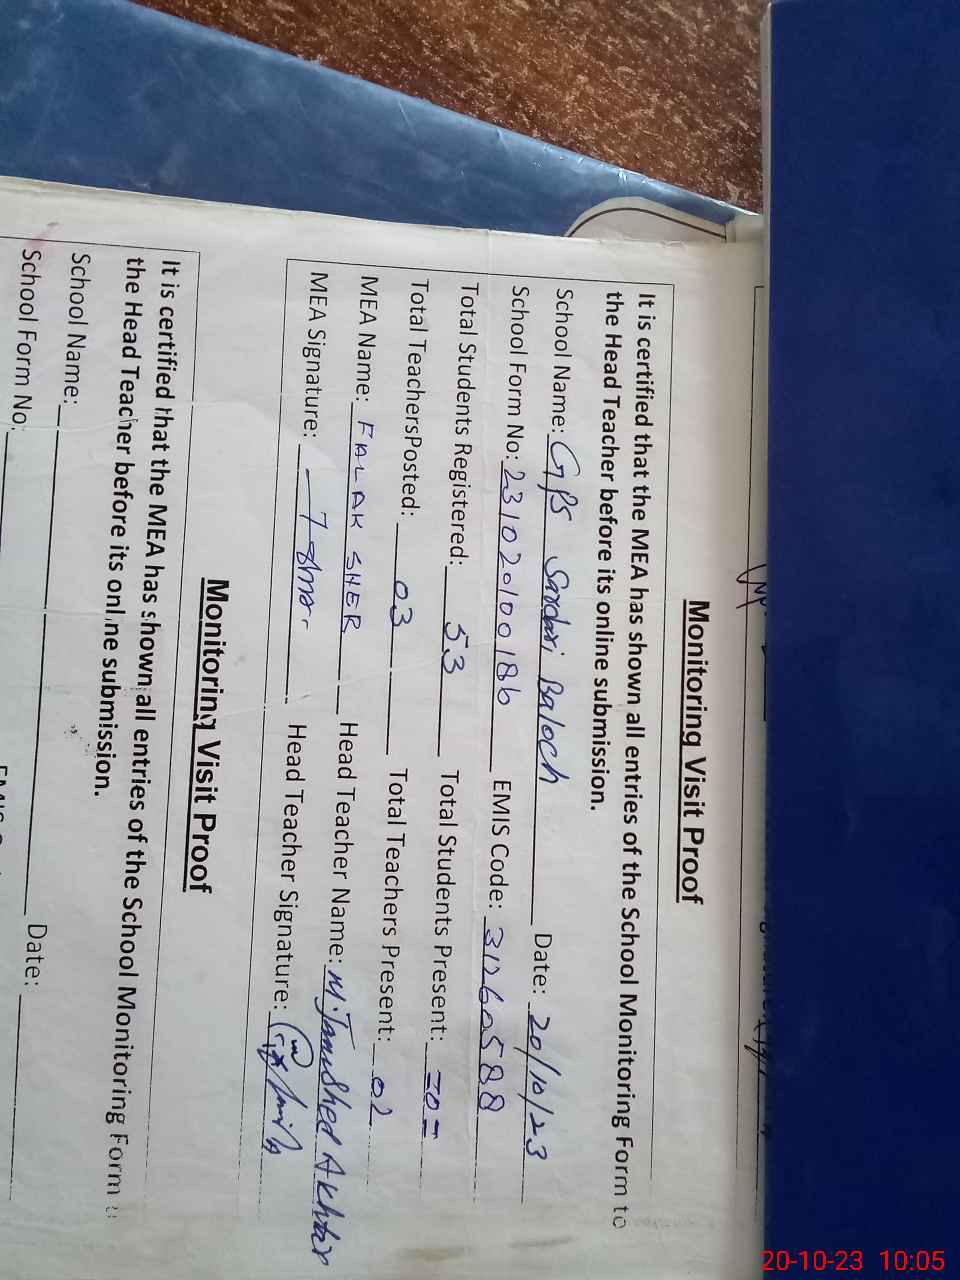 Monitoring Visit Proof
It is certified that the MEA has shown all entries of the School Monitoring Form to
the Head Teacher before its online submission.
School Name: GPS Sardari Baloch Date: 20/10/23
School Form No: 231020100186 EMIS Code: 31260588
Total Students Registered: 53 Total Students Present:
Total TeachersPosted: 03 Total Teachers Present: 02
MEA Name: FALAK SHER Head Teacher Name: M. Jamshed Akhtar
MEA Signature: Head Teacher Signature:
Monitoring Visit Proof
It is certified that the MEA has shown all entries of the School Monitoring Form
the Head Teacher before its online submission.
School Name: Date:
School Form No:
20-10-23 10:05